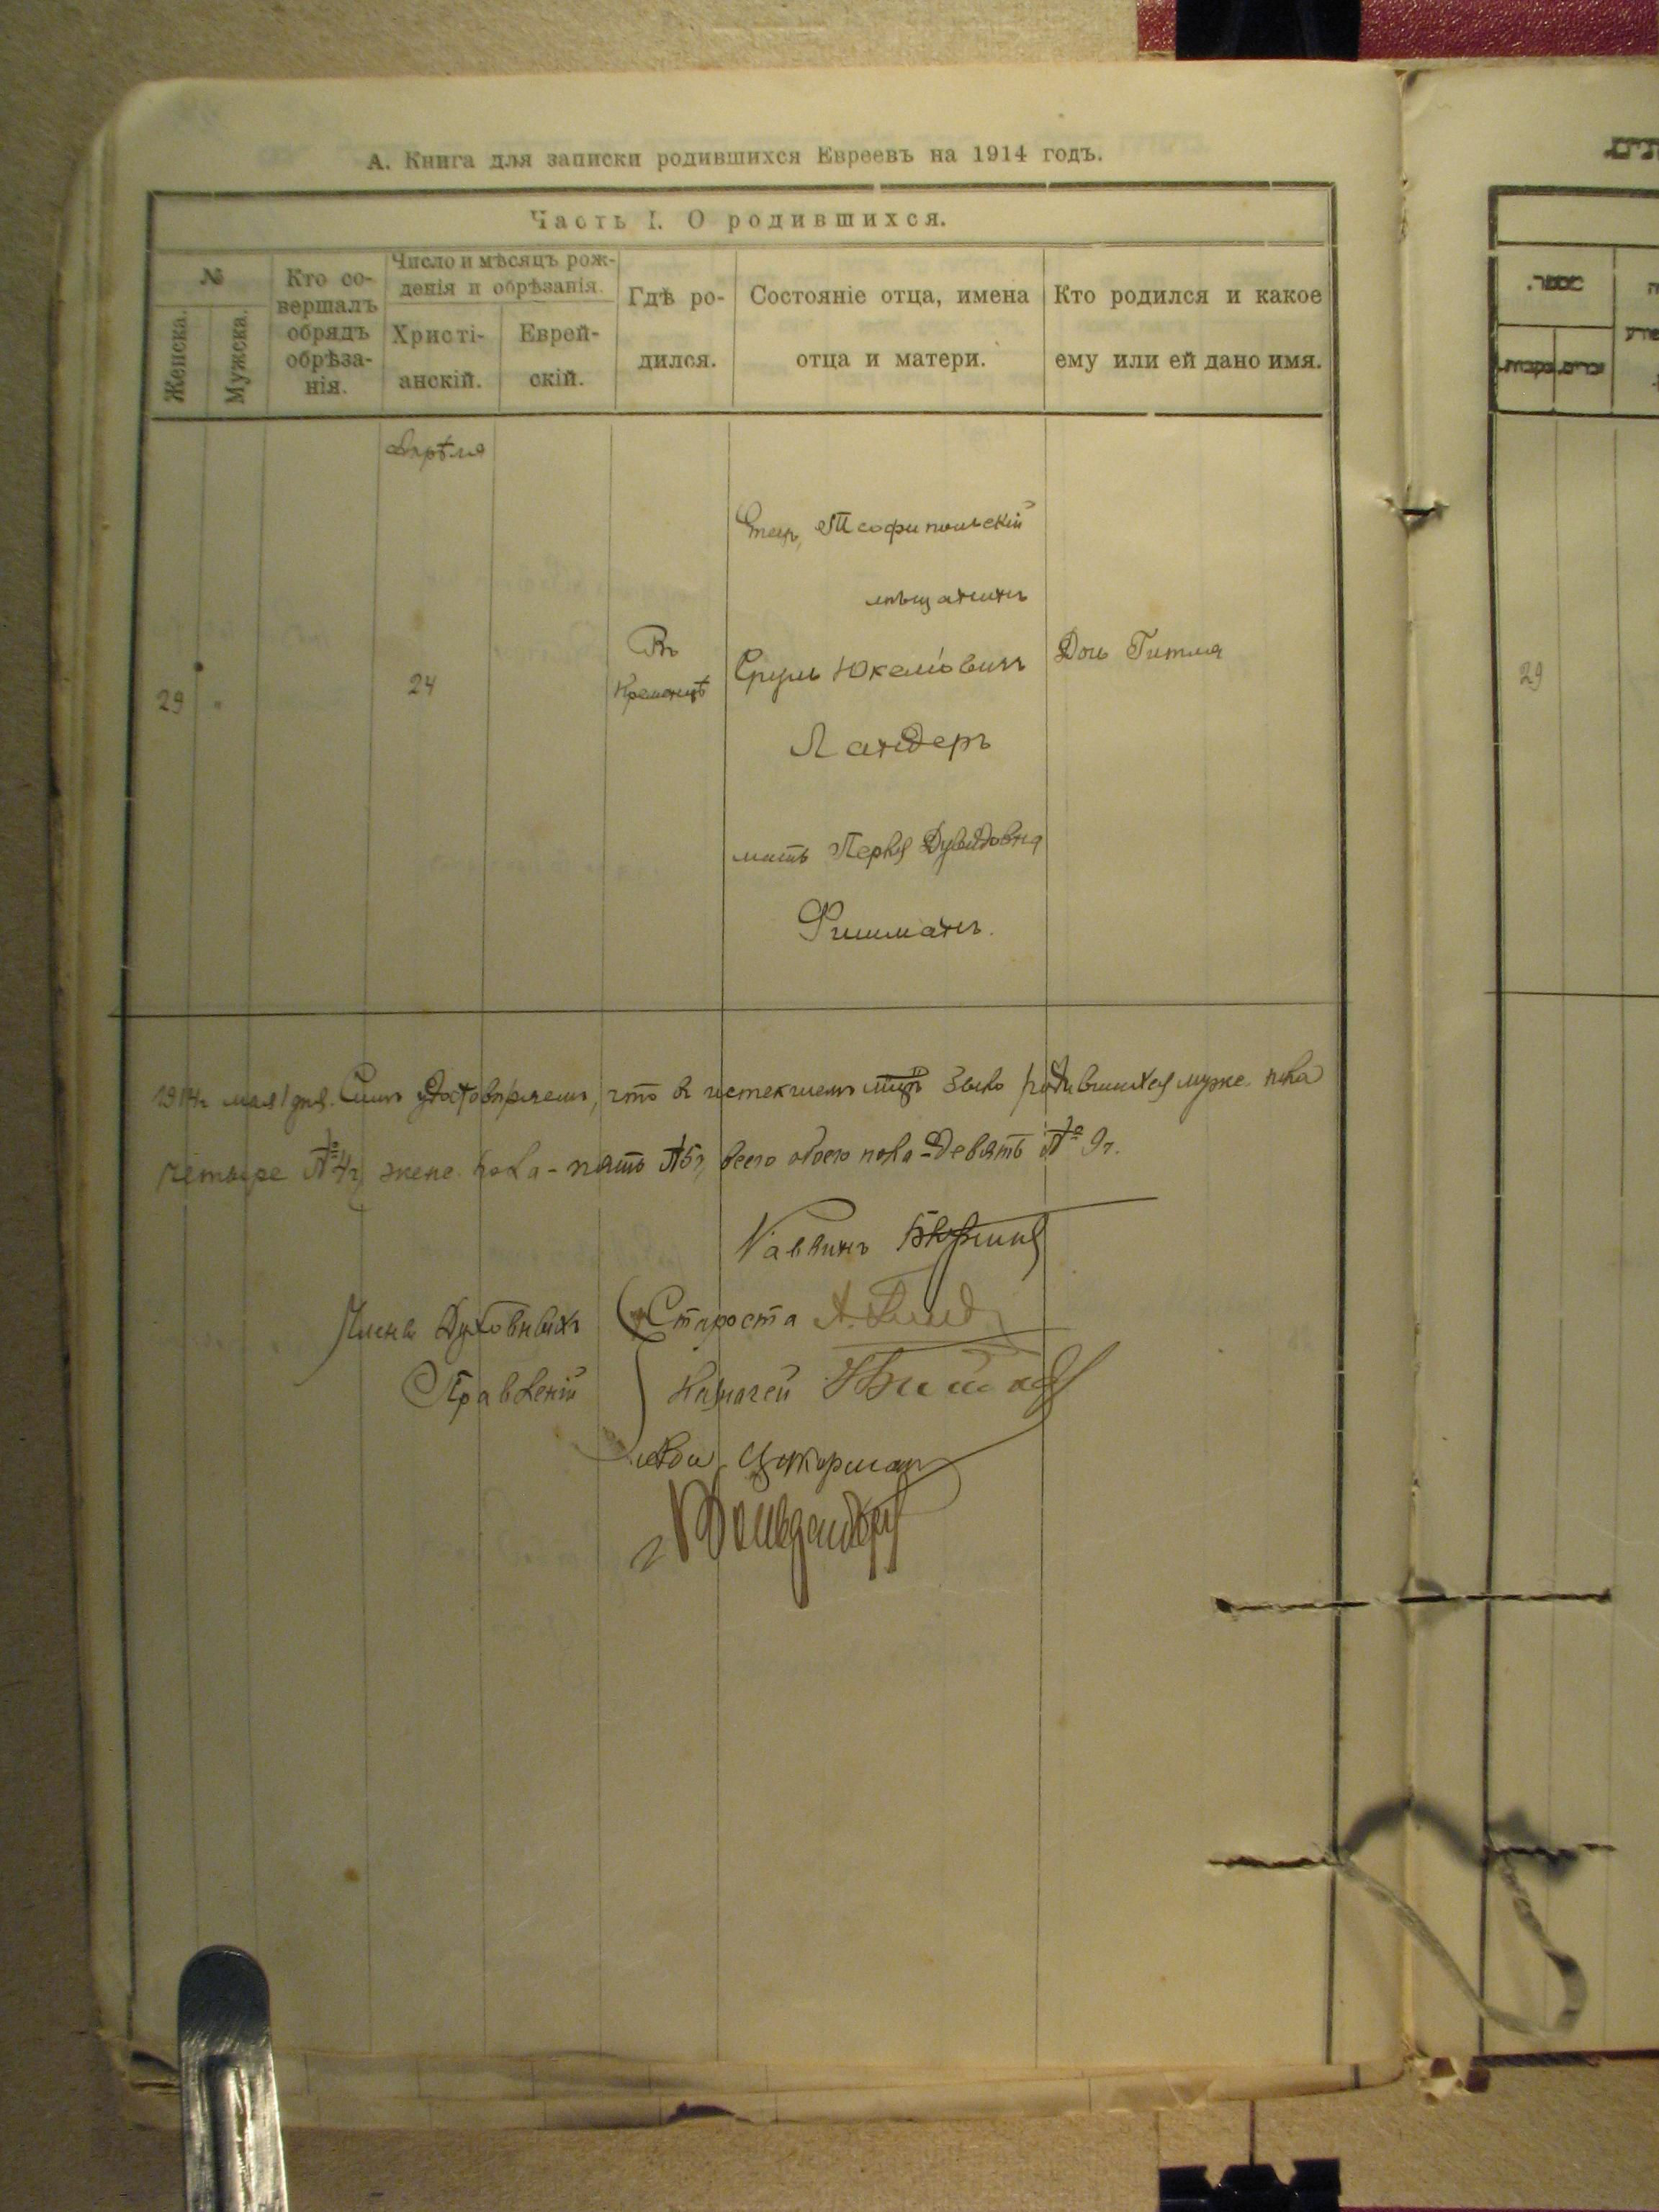 А. Книга для записки родившихся Евреевъ на 1914 годъ.
Часть I. О родившихся.
№
Женска.
Мужска.
Кто со-
вершалъ
обрядъ
обрѣза-
нія.
Число и мѣсяцъ рож-
денія и обрѣзанія.
Христі-
анскій.
Еврей-
скій.
Гдѣ ро-
дился.
Состояніе отца, имена
отца и матери.
Кто родился и какое
ему или ей дано имя.
Апрѣля
29
"
24
Въ
Кременцѣ
Отецъ, Теофипольскій
мѣщанинъ
Сруль Юкеліовичъ
Ландеръ
мать Перля Дувидовна
Фишманъ.
Дочь Гитля
1914 г мая 1 дня. Симъ удостовѣряемъ, что въ истекшемъ м-цѣ было родившихся муже. пола
четыре № 4 г, жене. пола - пять № 5 г, всего обоего пола - девять № 9 г.
Раввинъ
Члены Духовныхъ
Правленій
Староста
Казначей
Цукерман
29